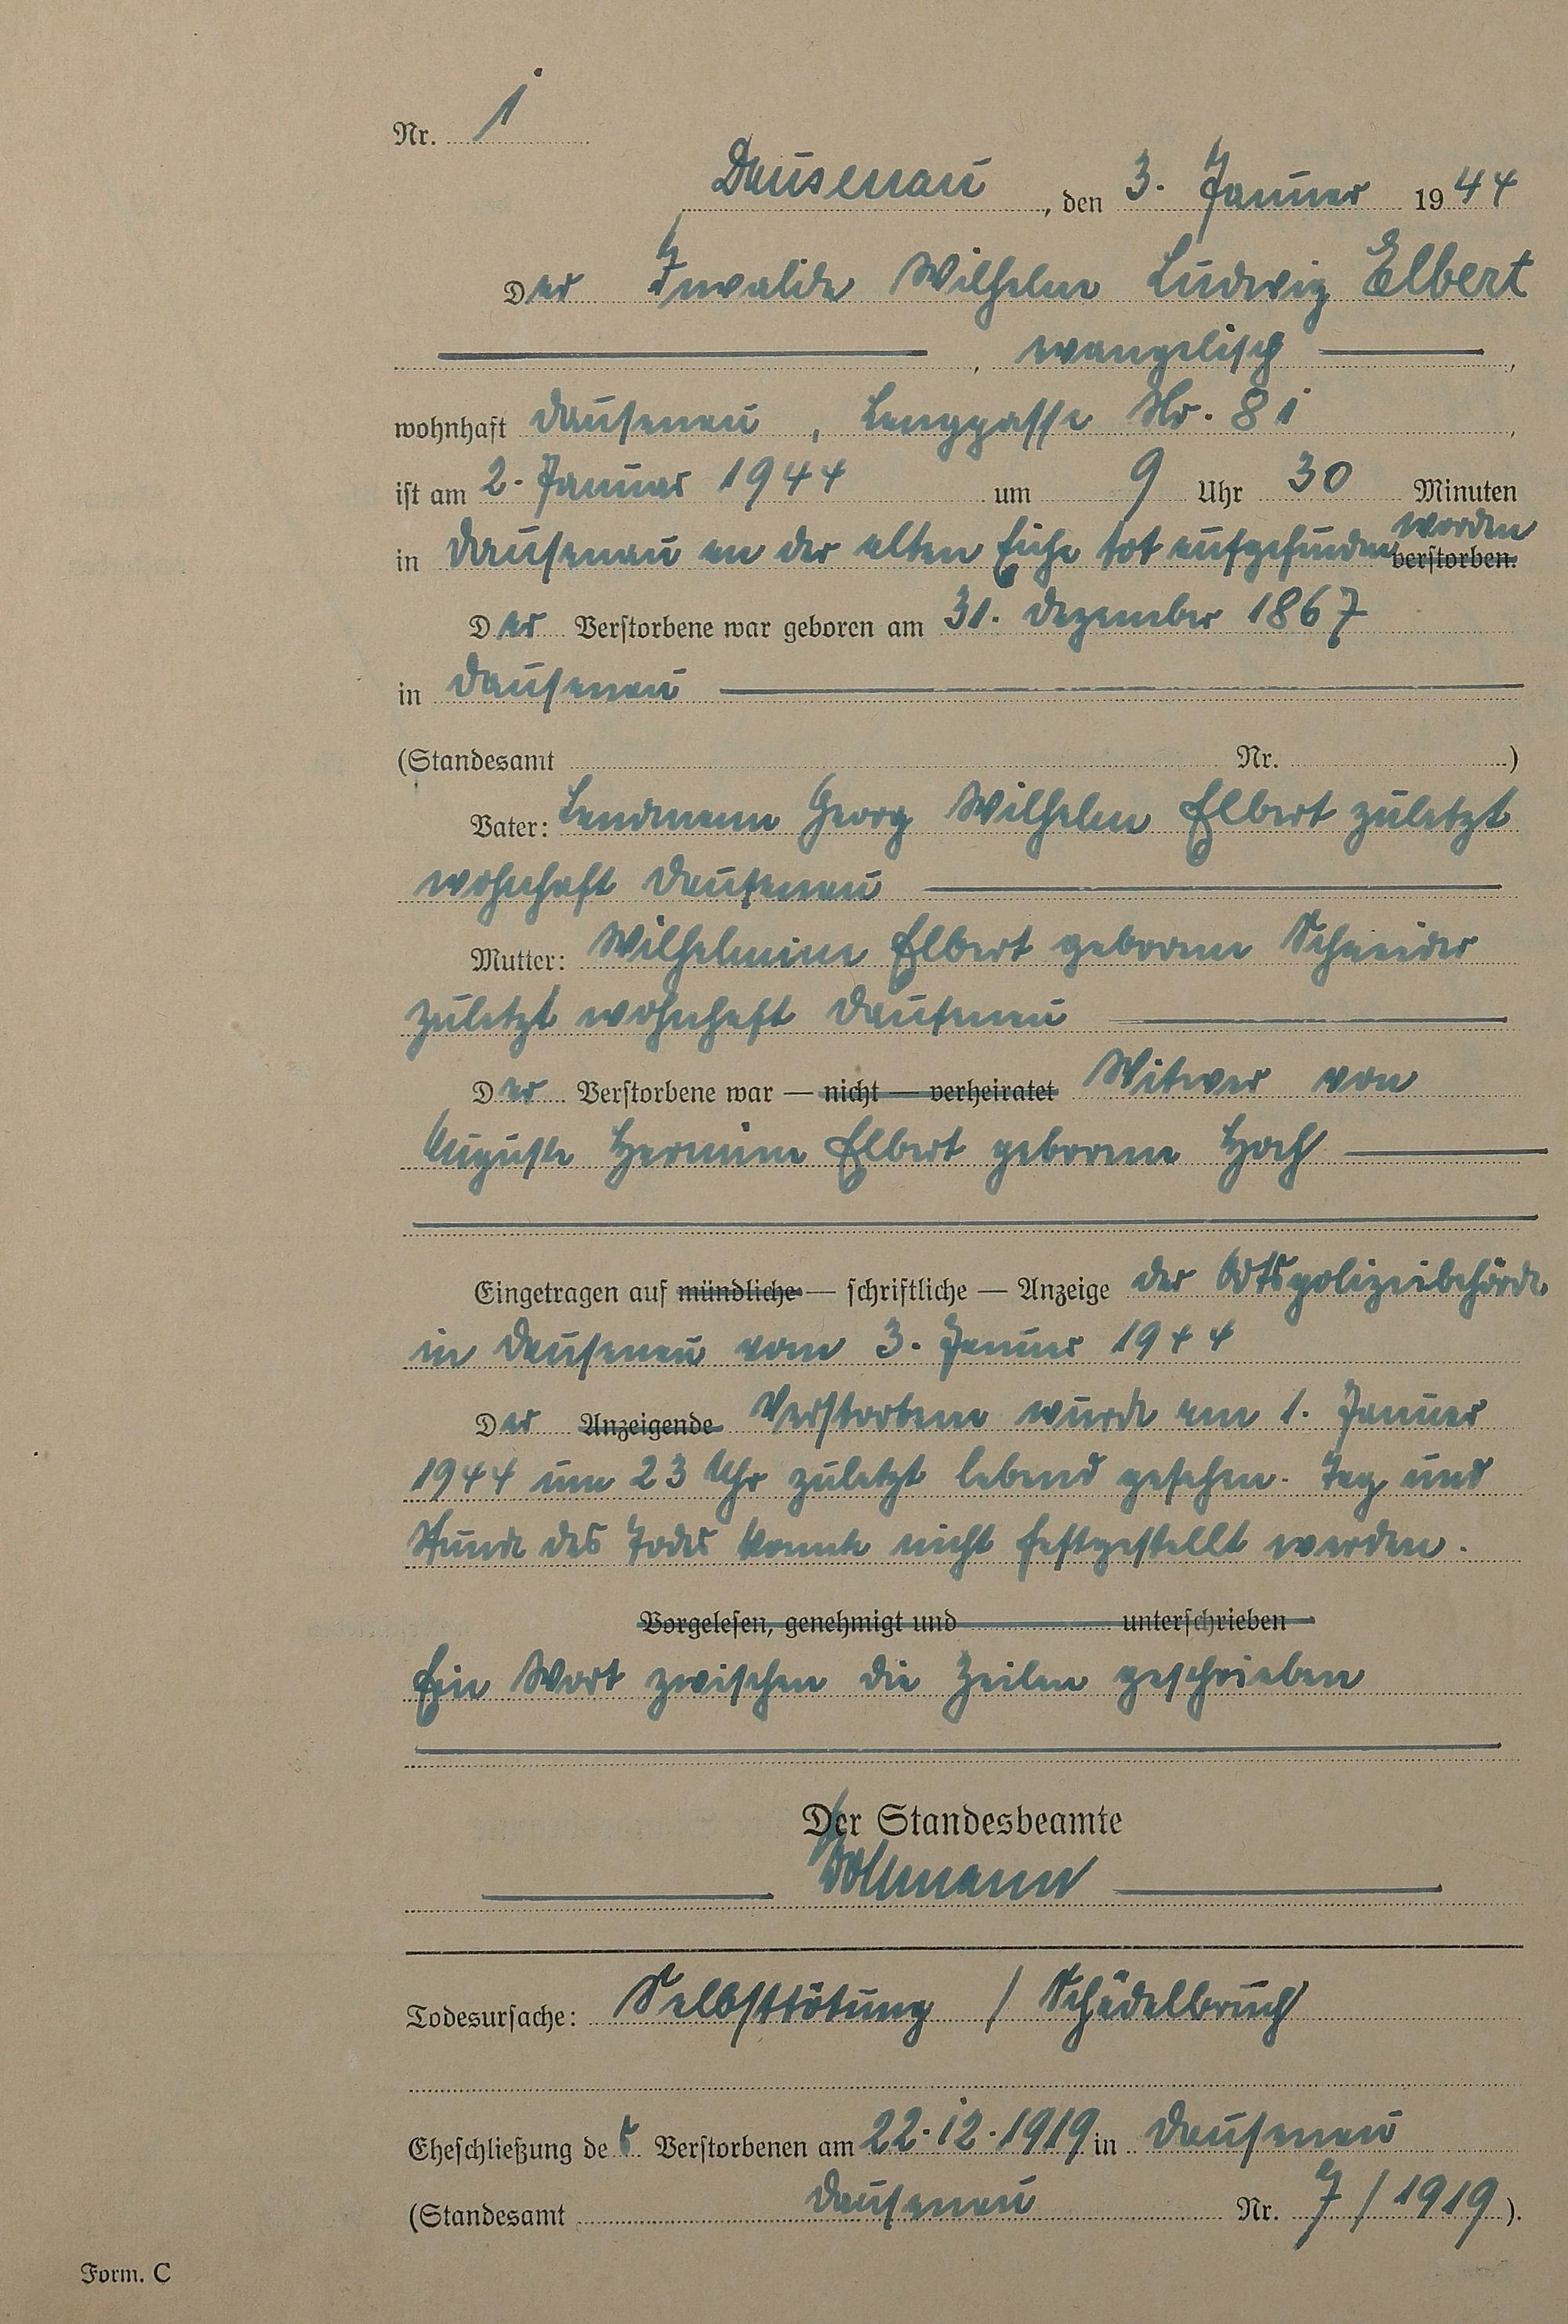 Nr. 1
Dausenau, den 3. Januar 1944
Der Invalide Wilhelm Ludwig Elbert
, evangelisch ,
wohnhaft Dausenau, Langgasse Nr. 81,
ist am 2. Januar 1944 um 9 Uhr 30 Minuten
worden
in Dausenau an der alten Eiche tot aufgefunden verstorben.
Der Verstorbene war geboren am 31. Dezember 1867
in Dausenau
(Standesamt Nr. )
Vater: Landmann Georg Wilhelm Elbert zuletzt
wohnhaft Dausenau
Mutter: Wilhelmine Elbert geborene Schneider
zuletzt wohnhaft Dausenau
Der Verstorbene war — nicht — verheiratet Witwer von
Auguste Hermine Elbert geborene Hoch
Eingetragen auf mündliche — schriftliche — Anzeige der Ortspolizeibehörde
in Dausenau vom 3. Januar 1944
Der Anzeigende Verstorbene wurde am 1. Januar
1944 um 23 Uhr zuletzt lebend gesehen. Tag und
Stunde des Todes konnte nicht festgestellt werden.
Vorgelesen, genehmigt und unterschrieben
Ein Wort zwischen die Zeilen geschrieben
Der Standesbeamte
Todesursache: Selbsttötung / Schädelbruch
Eheschließung des Verstorbenen am 22.12.1919 in Dausenau
(Standesamt Dausenau Nr. 7/1919).
Form. C